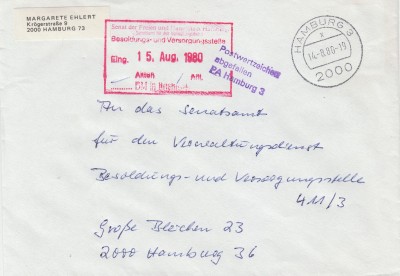 MARGARETE EHLERT
Krögerstraße 9
2000 HAMBURG 73
Senat der Freien und Hansestadt Hamburg
Besoldungs- und Versorgungsstelle
Eing. 15. Aug. 1980
Anl.
Postwertzeichen
abgefallen
PA Hamburg 3
HAMBURG 3
x
14.-8.80-19
2000
An das Senatsamt
für den Verwaltungsdienst
Besoldungs- und Versorgungsstelle
411/3
Große Bleichen 23
2000 Hamburg 36